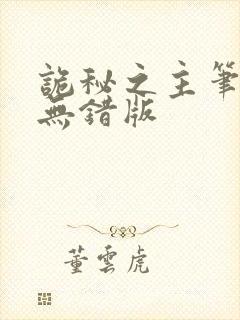 詭秘之主筆
無錯版
董雲虎